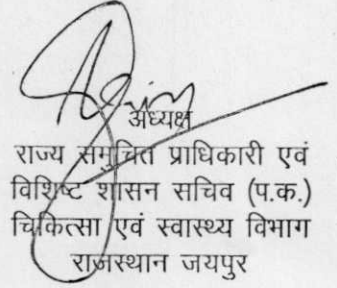 अध्यक्ष
राज्य समुचित प्राधिकारी एवं
विशिष्ट शासन सचिव (प.क.)
चिकित्सा एवं स्वास्थ्य विभाग
राजस्थान जयपुर